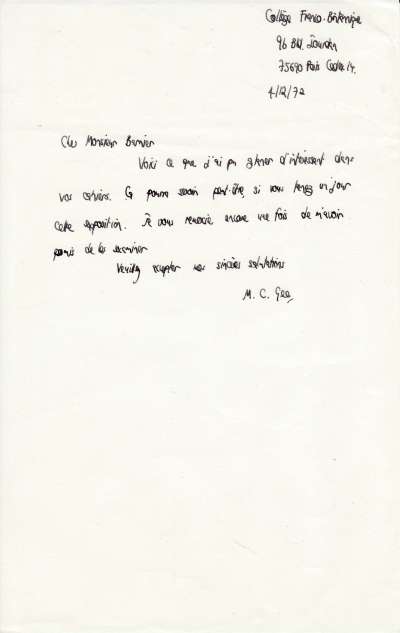 Collège Franco-Britannique
9b Bld. Jourdan
75690 Paris Cedex 14.
4/12/72
Cher Monsieur Bernier
Voici ce que j'ai pu glaner d'intéressant dans
vos cahiers. Ça pourra servir peut-être, si vous tenez un jour
cette exposition. Je vous remercie encore une fois de m'avoir
permis de les examiner
Veuillez accepter mes sincères salutations
M. C. Gee